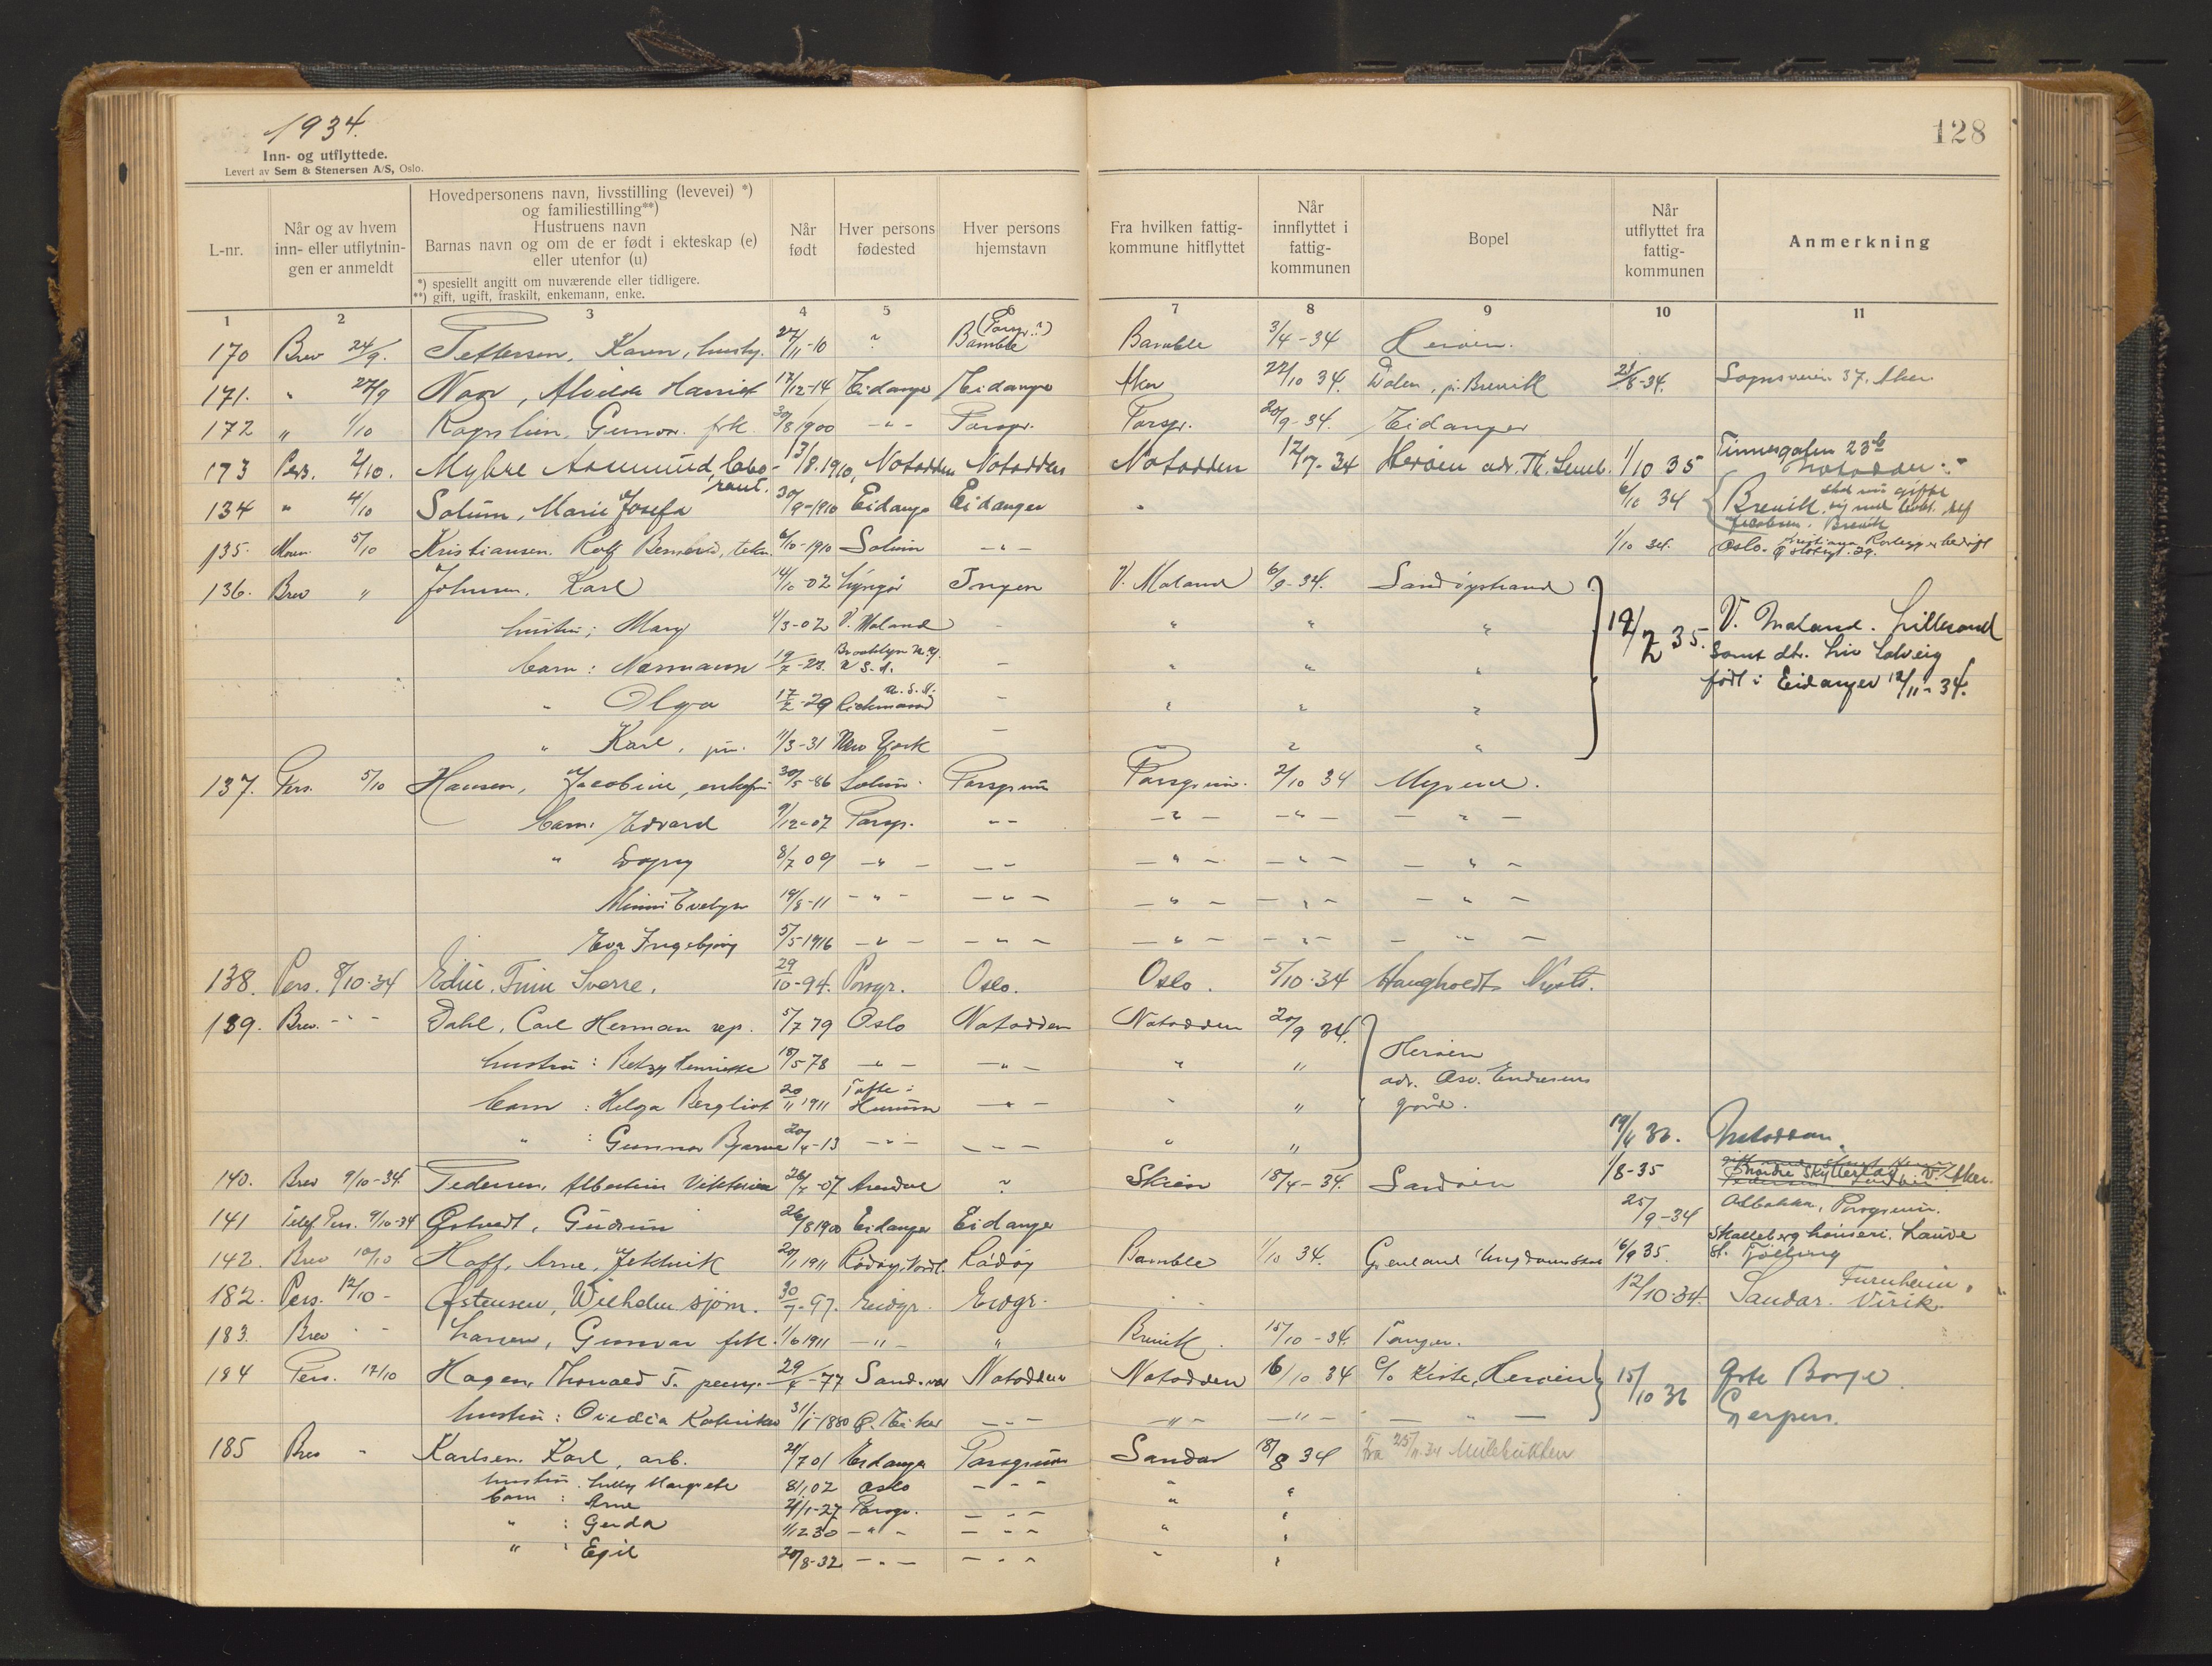 1934.
128
Inn- og utflyttede.
Levert av Sem & Stenersen A/S, Oslo.
L-nr.
Når og av hvem inn- eller utflytnin- gen er anmeldt
Hovedpersonens navn, livsstilling (levevei) *)
og familiestilling**)
Hustruens navn
Barnas navn og om de er født i ekteskap (e)
eller utenfor (u)
*) spesiellt angitt om nuværende eller tidligere.
**) gift, ugift, fraskilt, enkemann, enke.
Når født
Hver persons fødested
Hver persons hjemstavn
Fra hvilken fattig- kommune hitflyttet
Når innflyttet i fattig- kommunen
Bopel
Når utflyttet fra fattig- kommunen
Anmerkning
1 2 3 4 5 6 7 8 9 10 11
170 Brev 24/9. Pettersen, Karen, 27/11-10 ? (Porsgr.?) Bamble Bamble 3/4-34 Herøen.
171. " 27/9 Alvilde Harriet 17/12-14 Eidanger Eidanger Aker 22/10 34. Dalen, p. Brevik 21/8-34. Sognsveien 37, Aker
172 " 1/10 Gunvor. frk. 30/8 1900 - " - Porsgr. Porsgr. 20/9-34. Eidanger
173 Pers. 2/10. Myhre Aasmund, labo- rant. 13/8.1910, Notodden Notodden Notodden 12/7-34 Herøen adr. Th. 1/10 35 Tinnesgaten 23b Notodden.
134 " 4/10 Solum, Marie Josefa 30/9-1910 Eidanger Eidanger " 6/10 34 Brevik, skal gifte sig med Jacobsen. Brevik
135. 5/10 Kristiansen. Rolf 6/10-1910 Solum - " - 1/10 34. Oslo.
136. Brev " Johnsen, Karl 14/10-02 Lyngør Ingen V. Moland 6/9-34. Sandøystrand 12/2 35. V. Moland. Lillesand
hustru; Mary 4/3-02 V. Moland - " " " samt dtr. Liv Solveig
barn: Normann 19/7-23. Brooklyn N.Y. U S.A. - " " " født i Eidanger 12/11-34.
" Olga 17/2-29 Richmond U.S.A. - " " "
" Karl, jun. 11/3-31 New York - " " "
137. Pers. 5/10 Hansen, Jacobine, enkefru 30/5-86 Solum Porsgrunn Porsgrunn. 2/10 34 Myrene.
barn: Edvard 9/12-07 Porsgr. - " - - " - - " - - " -
" Dagny 8/7 09 - " - - " - - " - - " - - " -
Minni Evelyn 19/8-11 - " - - " - - " - - " - - " -
Eva Ingebjørg 5/5-1916 - " - - " - - " - - " - - " -
138. Pers. 8/10-34 Finn Sverre. 29/10-94. Porsgr. Oslo. Oslo. 5/10-34
139. Brev. - " - Dahl, Carl Herman rep. 5/7 79 Oslo Notodden Notodden 20/9 34. Herøen
hustru: Betzy Henriette 18/5 78 - " - - " - " " adr. Osv. Endresens
barn: Helga Bergliot 20/11 1911 Tofte i Hurum - " - " " gård.
" : Gunnar Bjarne 20/4-13 - " - - " - " " 19/4 36. Notodden.
140. Brev 9/10-34. Pedersen, Albertine Viktoria 26/7-07 Arendal ? Skien 18/4-34. Sandøen 1/8-35 V. Aker.
141 Telef. Pers. 9/10-34 Østvedt, Gudrun 26/8 1900 Eidanger Eidanger 25/9-34 Porsgrunn.
142. Brev 10/10 Hoff, Arne, 20/1 1911 Rødøy, Nordl. Rødøy Bamble 1/10 34. Grenland Ungdomsskole 16/9 35. Skalleberg Tjølling
182. Pers. 12/10 - Østensen, Wilhelm sjøm. 30/7-97. Eidgr. Eidgr. 12/10-34. Sandar. Furuheim, Virik.
183. Brev - " - Larsen, Gunvor frk. 1/6 1911 - " - " Brevik. 15/10-34. Tangen.
184 Pers. 17/10 Hagen, Thorvald T. 29/4-77 Notodden Notodden 16/10 34 c/o Herøen 15/10 36 Borge
hustru: 31/1-1880 Ø. Eiker - " - - " - - " - - " - Gjerpen.
185 Brev " Karlsen. Karl, arb. 21/7 01 Eidanger Porsgrunn Sandar 18/8 34 Fra 25/11-34
hustru: Lully Margrete 8/1 02 Oslo - " - " "
barn: Arne 21/1-27 Porsgr. - " - " "
" : Gerda 1/12 30 - " - - " - " "
" : Egil 20/8-32 - " - - " - " "